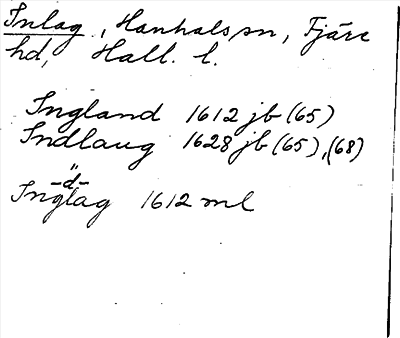 Inlag, Hanhals sn, Fjäre
hd, Hall. l.
Ingland 1612 jb (65)
Indlaug 1628 jb (65), (68)
"
-d-
Inglag 1612 ml